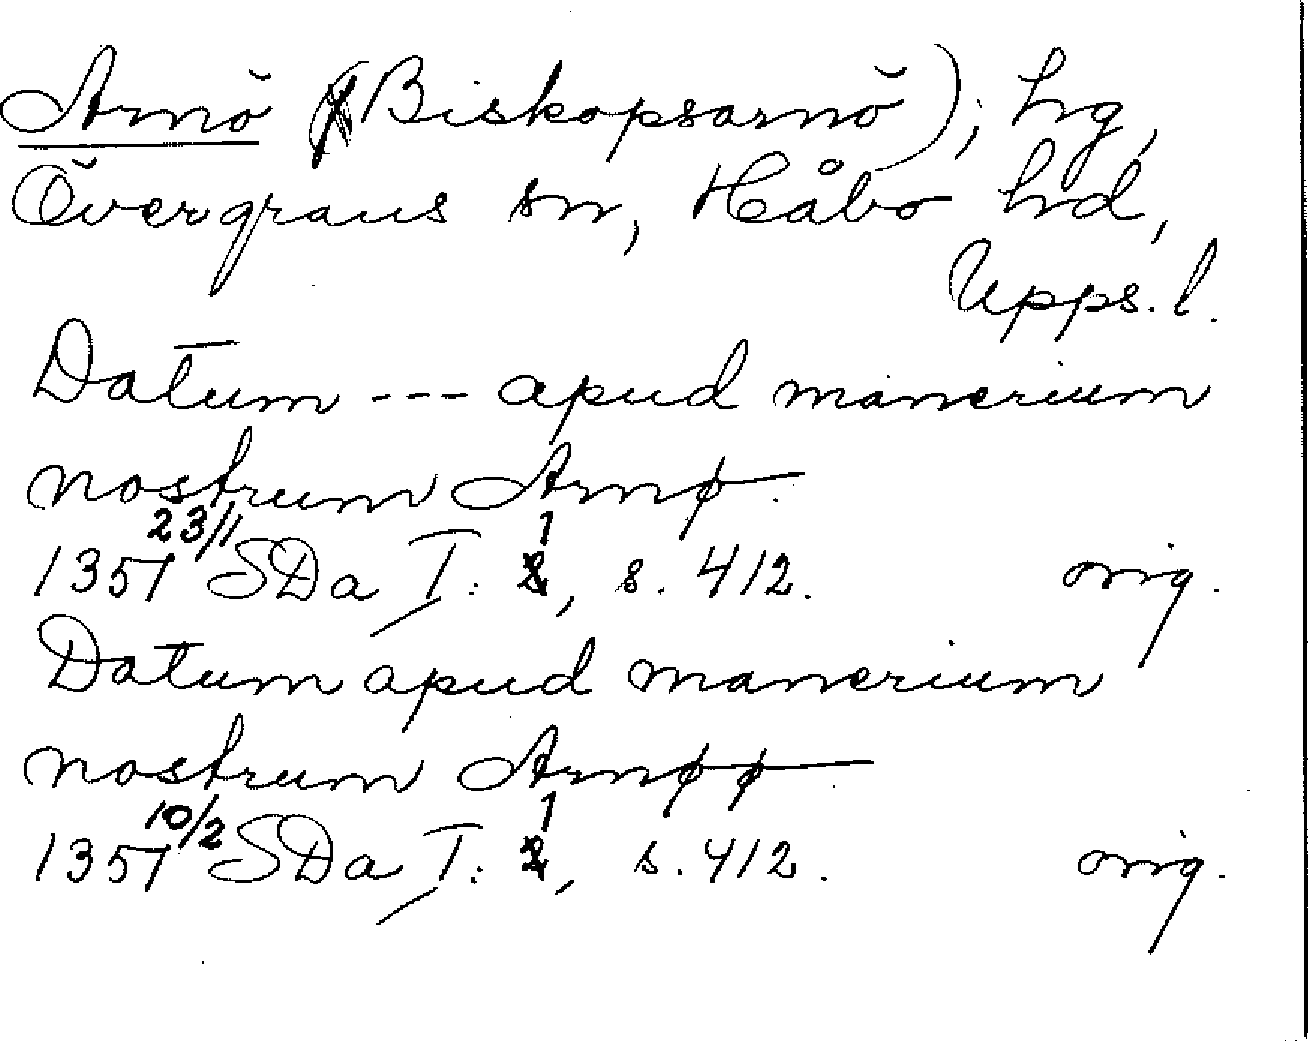 Arnö (Biskopsarnö); hg,
Övergrans sn, Håbo hd,
Upps. l.
Datum --- apud manerium
nostrum Arnø.
1357 23/1 SDa I: 1, s. 412. orig.
Datum apud manerium
nostrum Arnøø
1357 10/2 SDa I: 1, s. 412. orig.